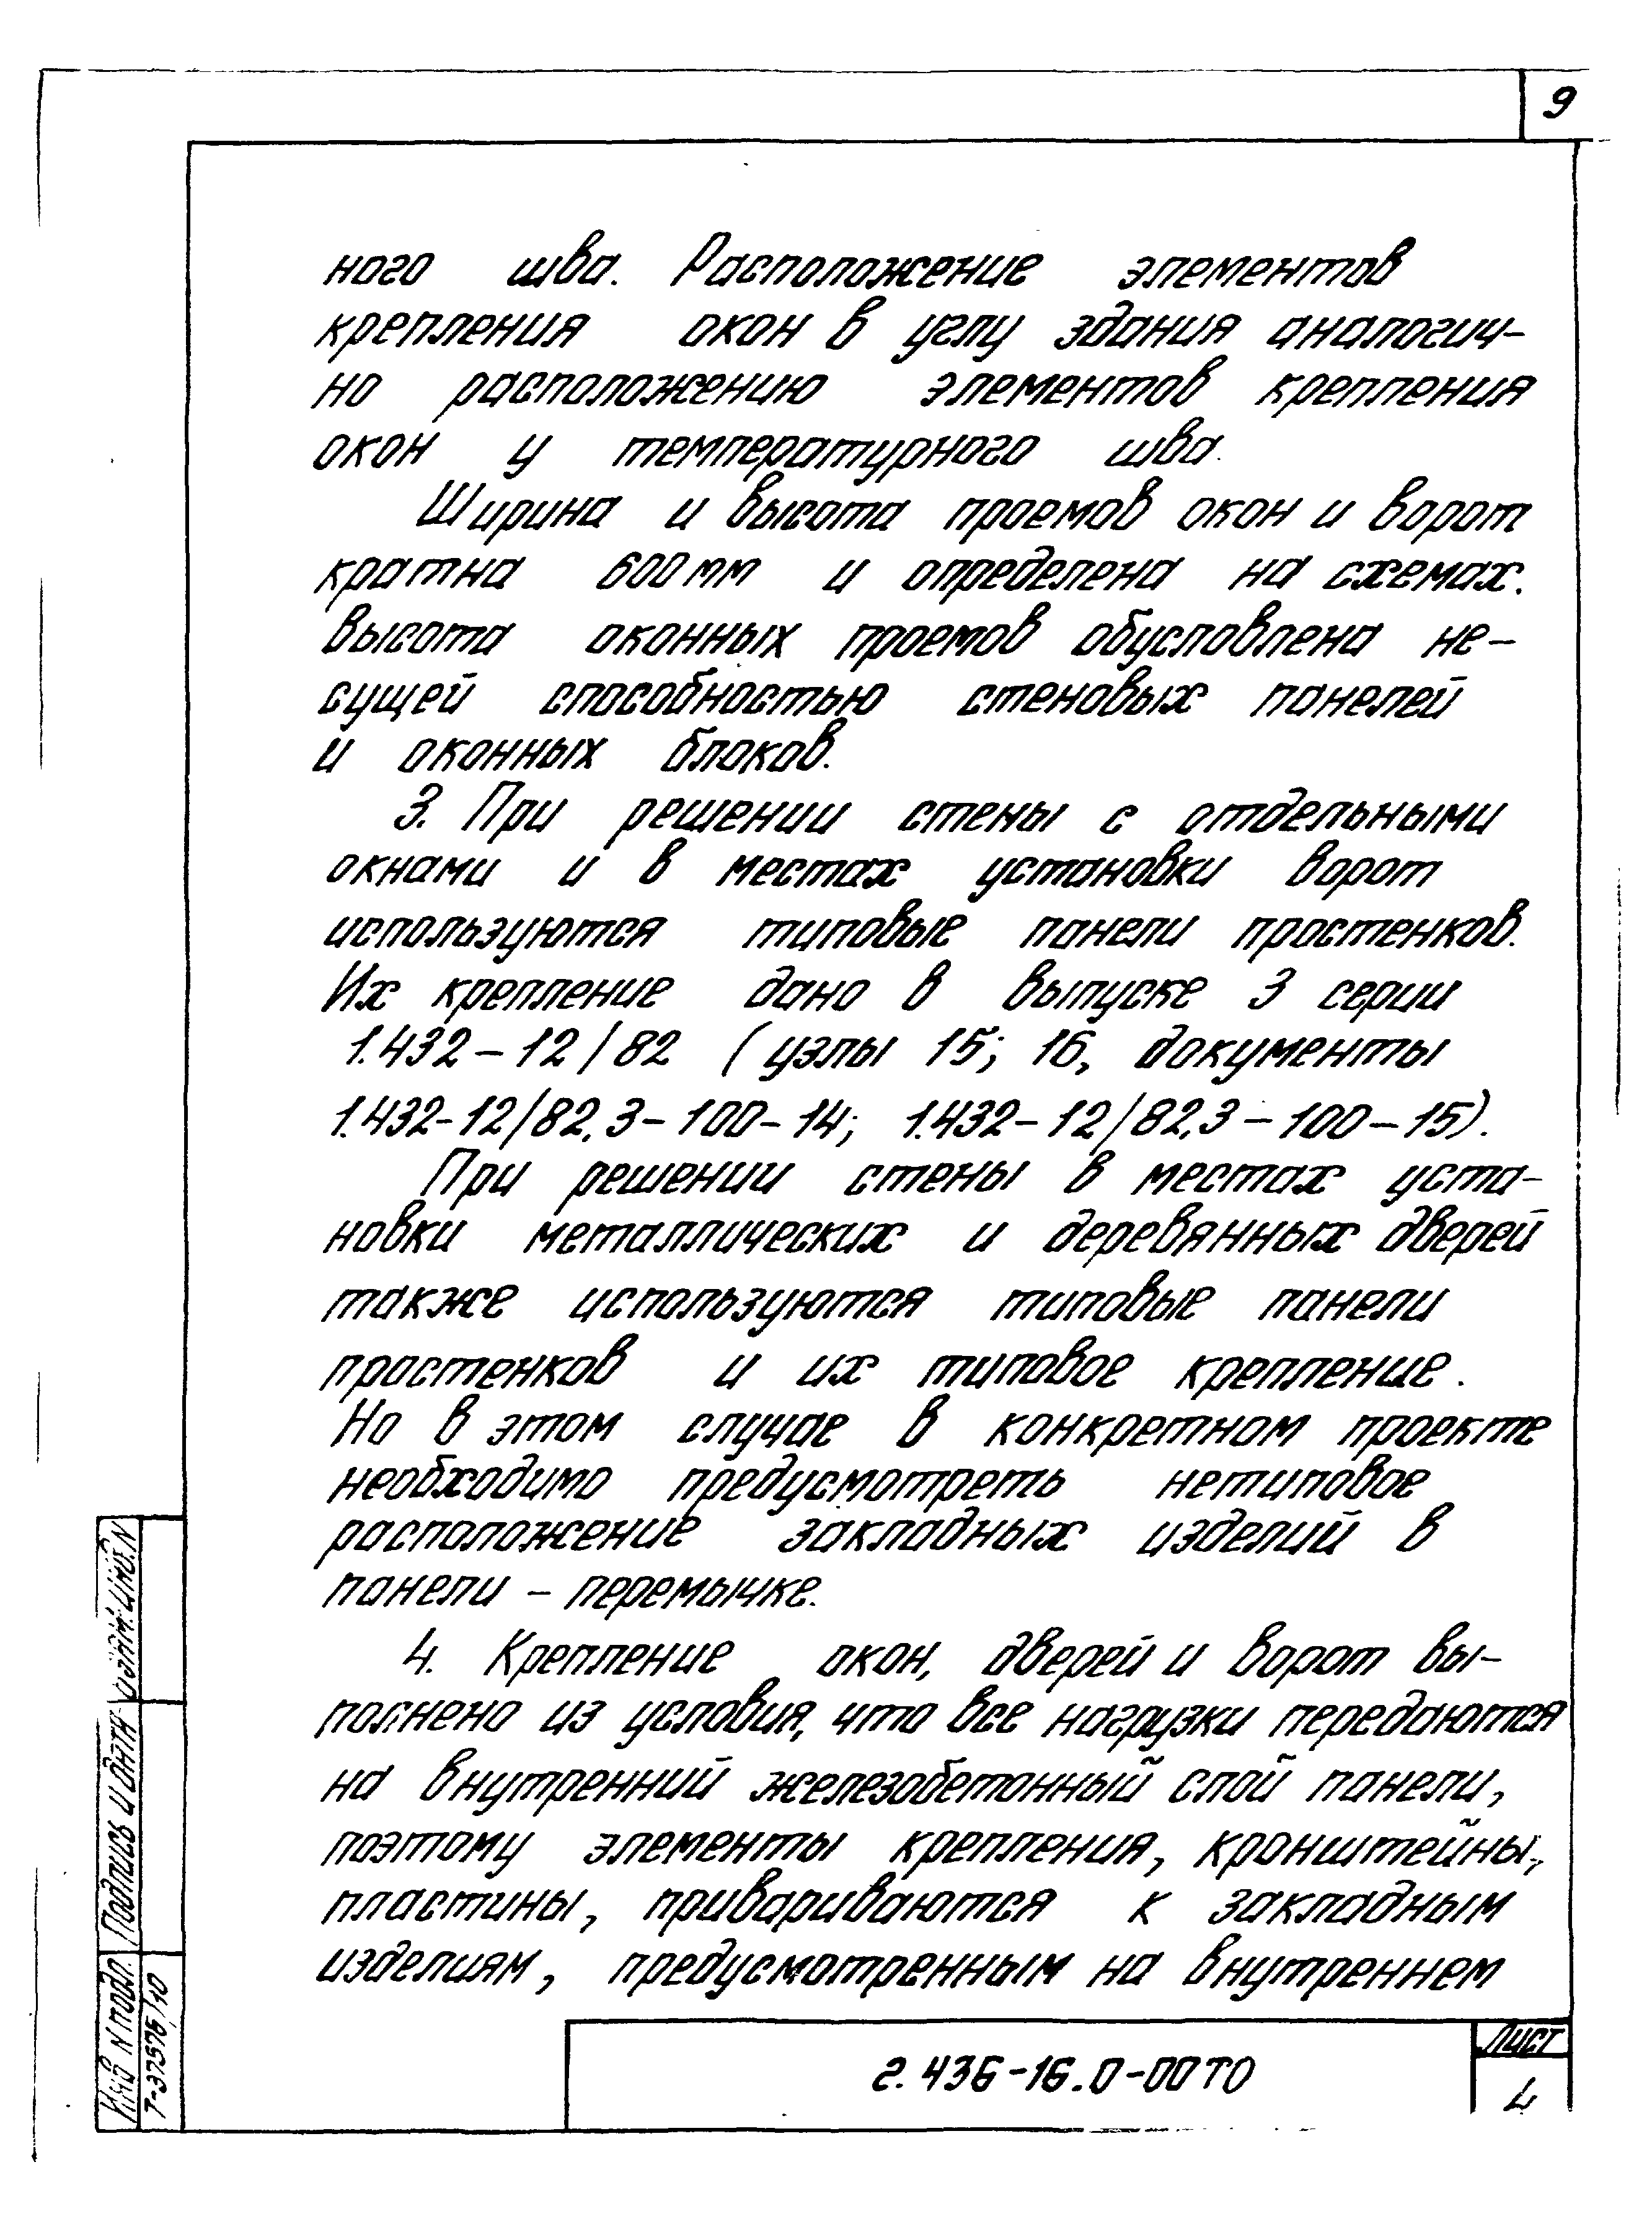 9
ного шва. Расположение элементов
крепления окон в углу здания аналогич-
но расположению элементов крепления
окон у температурного шва.
Ширина и высота проемов окон и ворот
кратна 600 мм и определена на схемах.
Высота оконных проемов обусловлена не-
сущей способностью стеновых панелей
и оконных блоков.
3. При решении стены с отдельными
окнами и в местах установки ворот
используются типовые панели простенков.
Их крепление дано в выпуске 3 серии
1.432-12/82 (узлы 15; 16, документы
1.432-12/82.3-100-14; 1.432-12/82.3-100-15).
При решении стены в местах уста-
новки металлических и деревянных дверей
также используются типовые панели
простенков и их типовое крепление.
Но в этом случае в конкретном проекте
необходимо предусмотреть нетиповое
расположение закладных изделий в
панели - перемычке.
4. Крепление окон, дверей и ворот вы-
полнено из условия, что все нагрузки передаются
на внутренний железобетонный слой панели,
поэтому элементы крепления, кронштейны,
пластины, привариваются к закладным
изделиям, предусмотренным на внутреннем
2.436-16.0-00ТО
Лист
4
Инв N подл.
Т-37575/10
Подпись и дата
Взам. инв. N